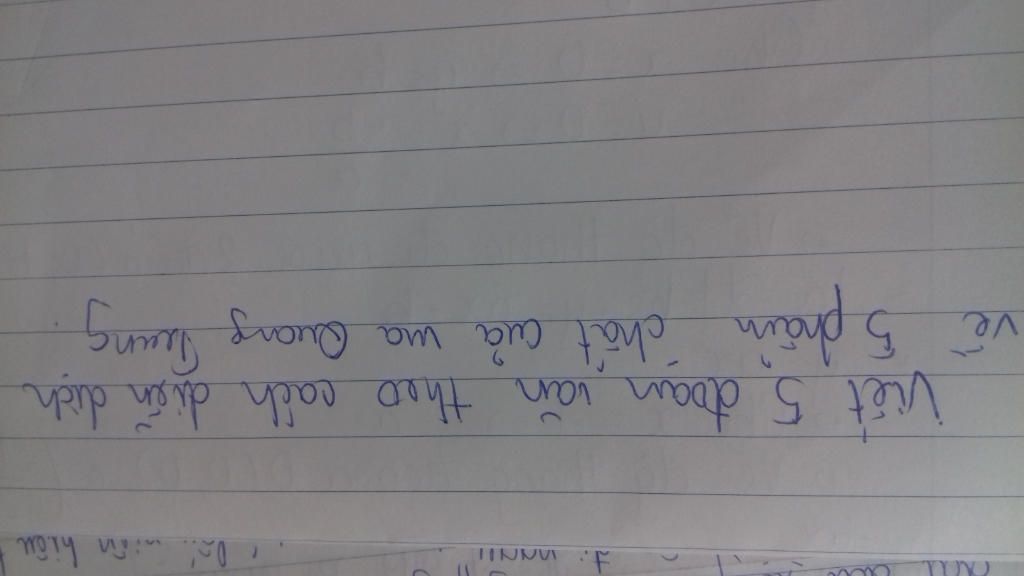 Viết 5 đoạn văn theo cách diễn dịch
về 5 phẩm chất của vua Quang Trung.